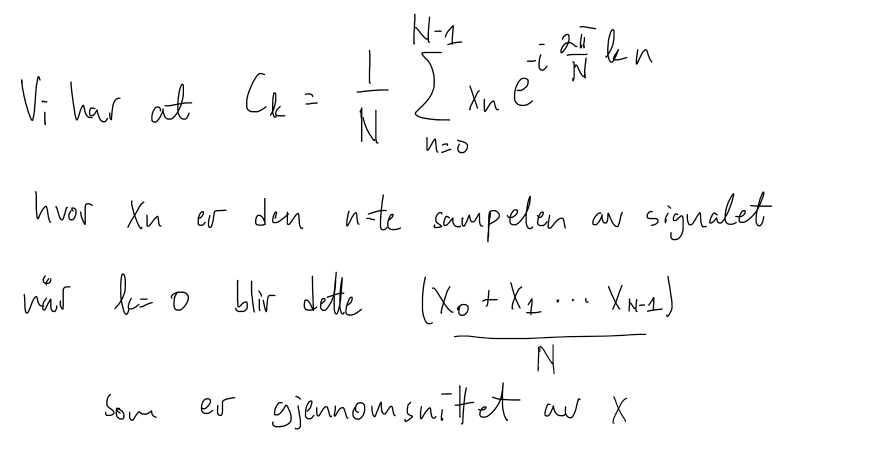 Vi har at C_k = 1/N ∑_{n=0}^{N-1} x_n e^{-i 2π/N kn}
hvor x_n er den n-te sampelen av signalet
når k=0 blir dette (x_0 + x_1 ... x_{N-1})/N
som er gjennomsnittet av x